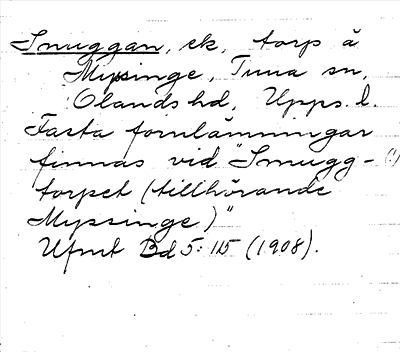 Smuggan, ek, torp å
Myssinge, Tuna sn,
Olands hd, Upps. l.
Fasta fornlämningar
finnas vid "Smugg- (!)
torpet (tillhörande
Myssinge)"
Ufmt Bd 5: 115 (1908).